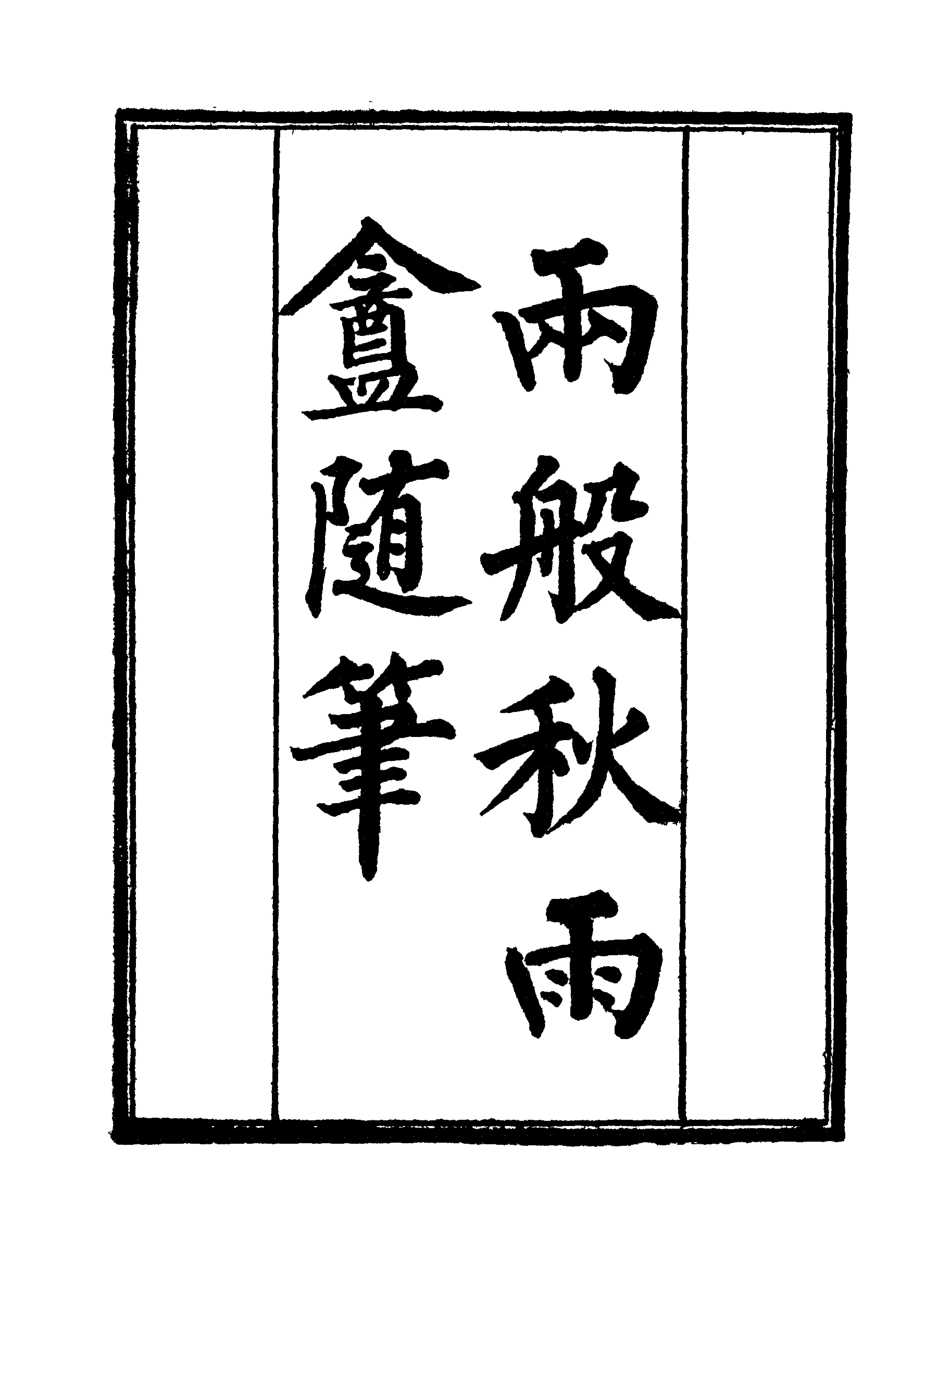 兩般秋雨
盦隨筆